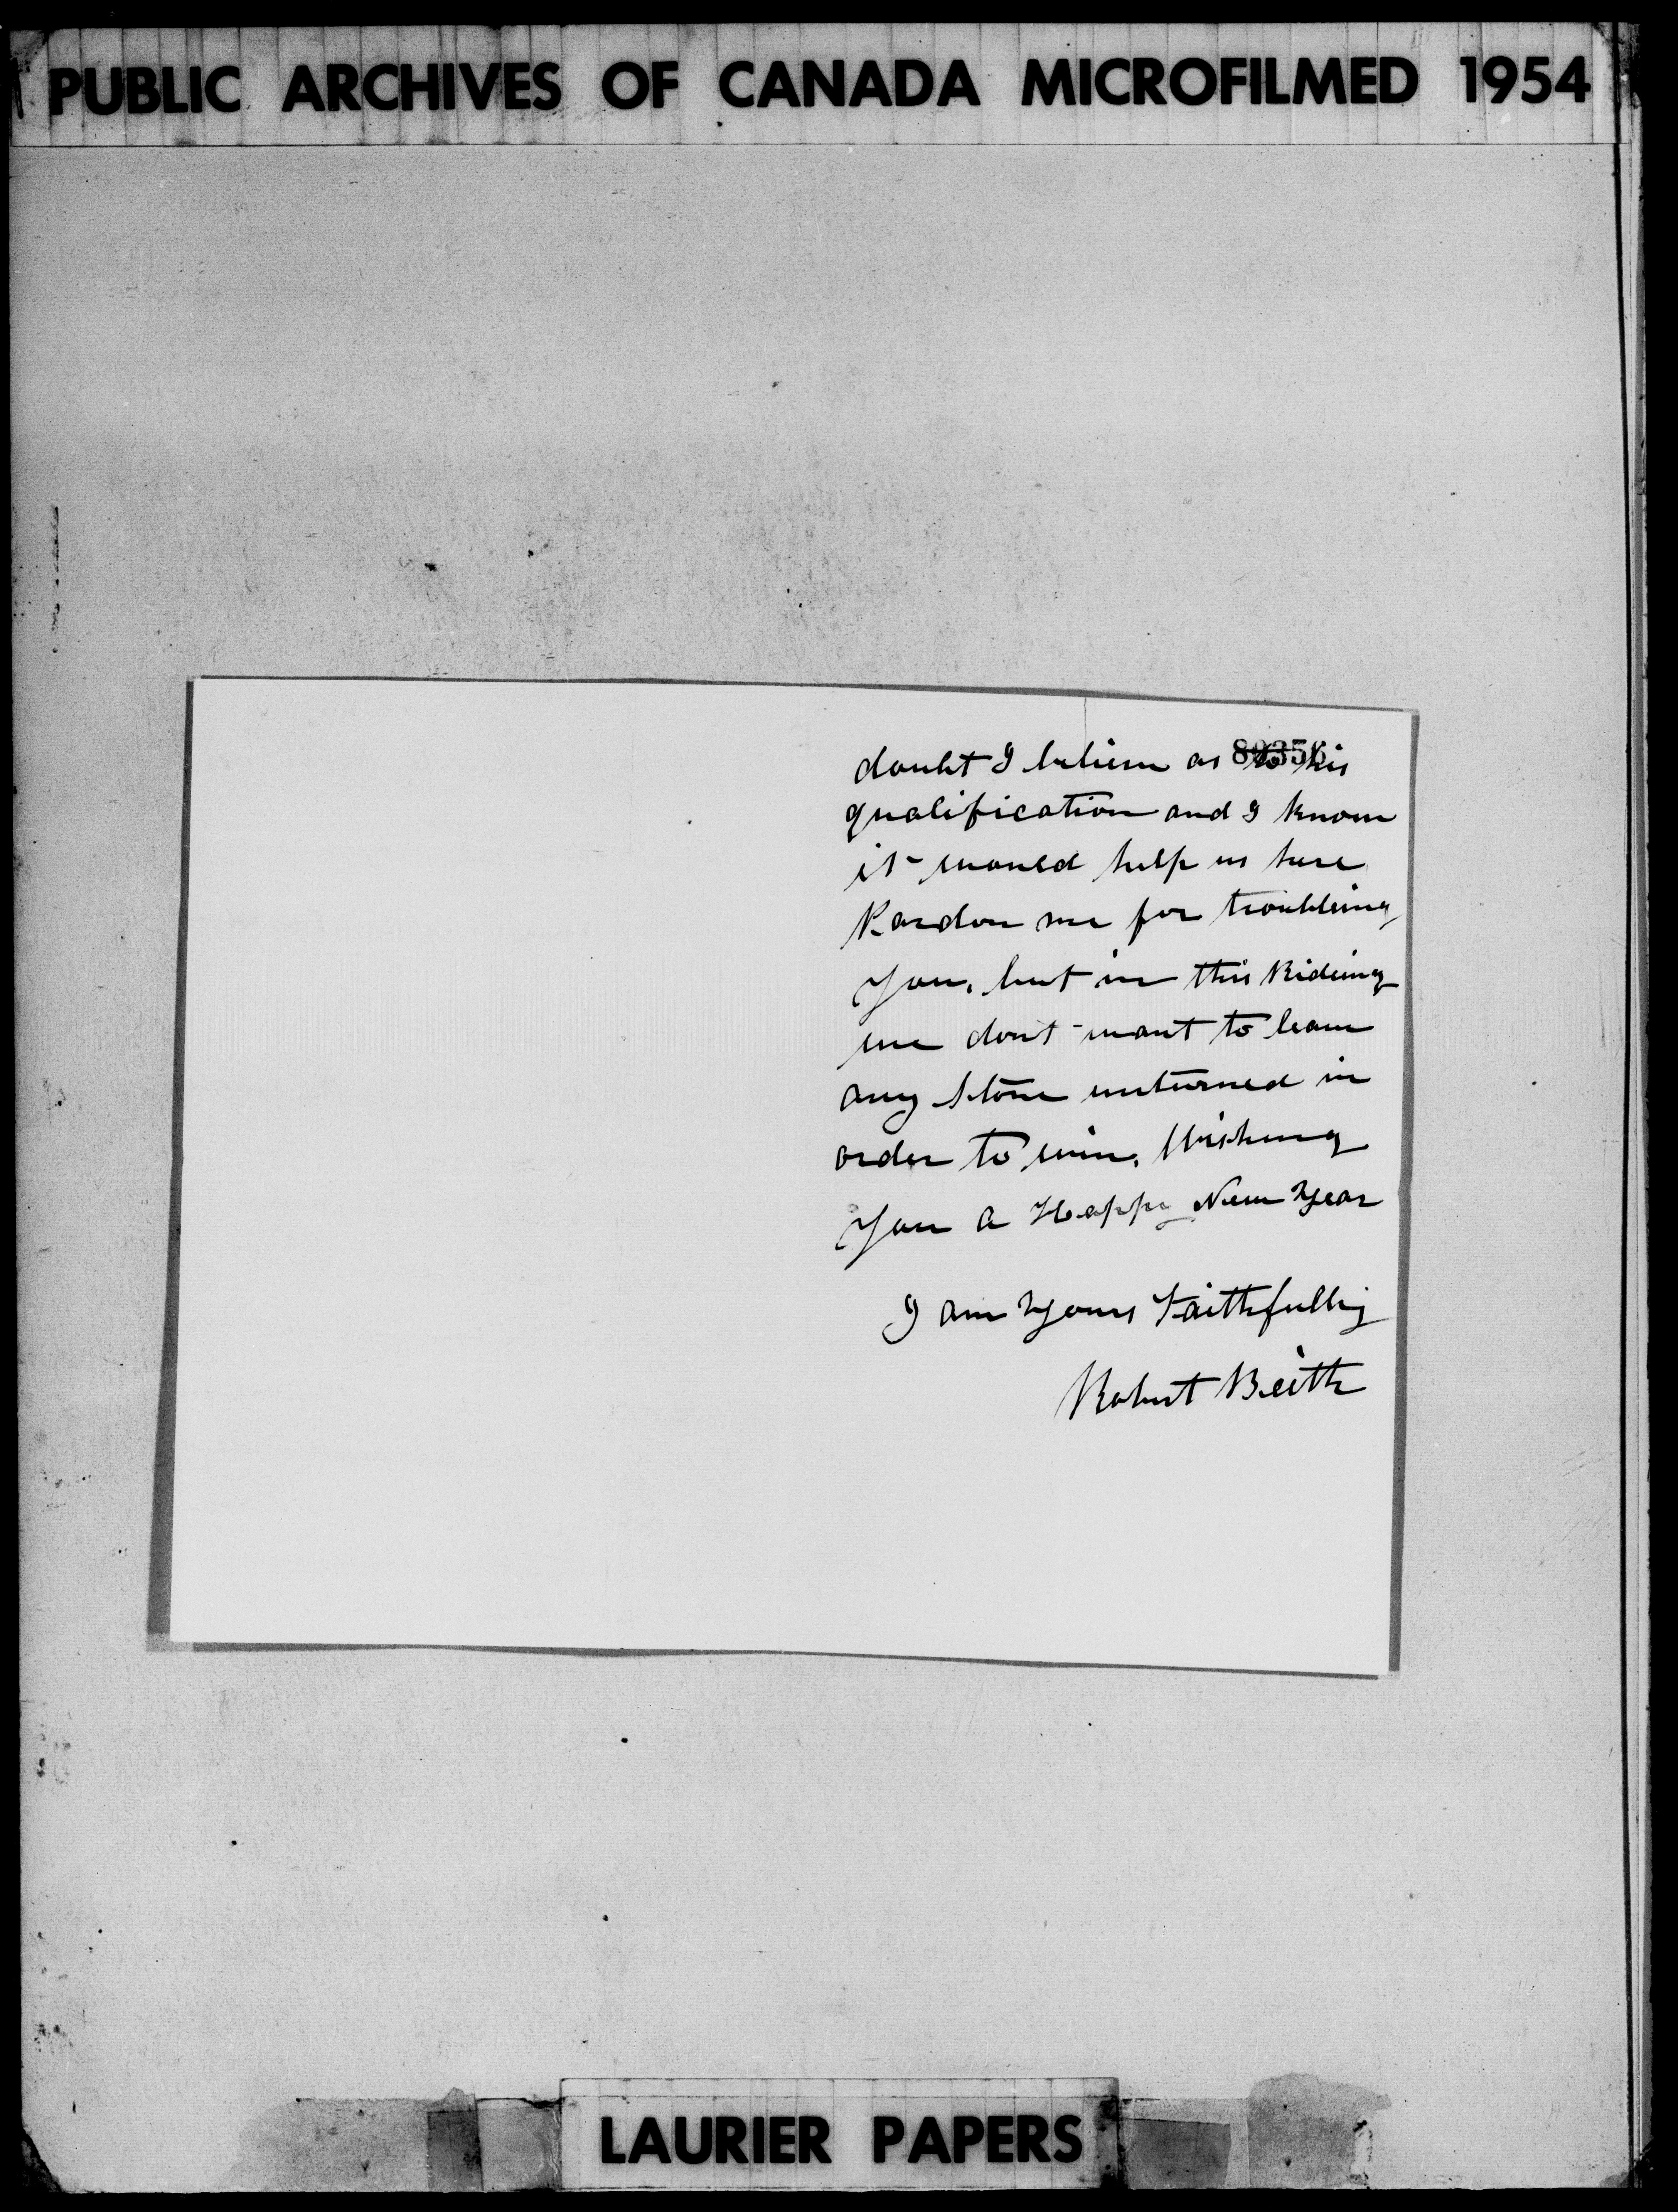 PUBLIC ARCHIVES OF CANADA MICROFILMED 1954
doubt I believe as to his
qualification and I know
it would help us here
Pardon me for troubleing
you, but in this Rideing
we dont want to leave
any stone unturned in
order to win. Wishing
you a Happy New Year
I am Yours Faithfully
Robert Beith
LAURIER PAPERS